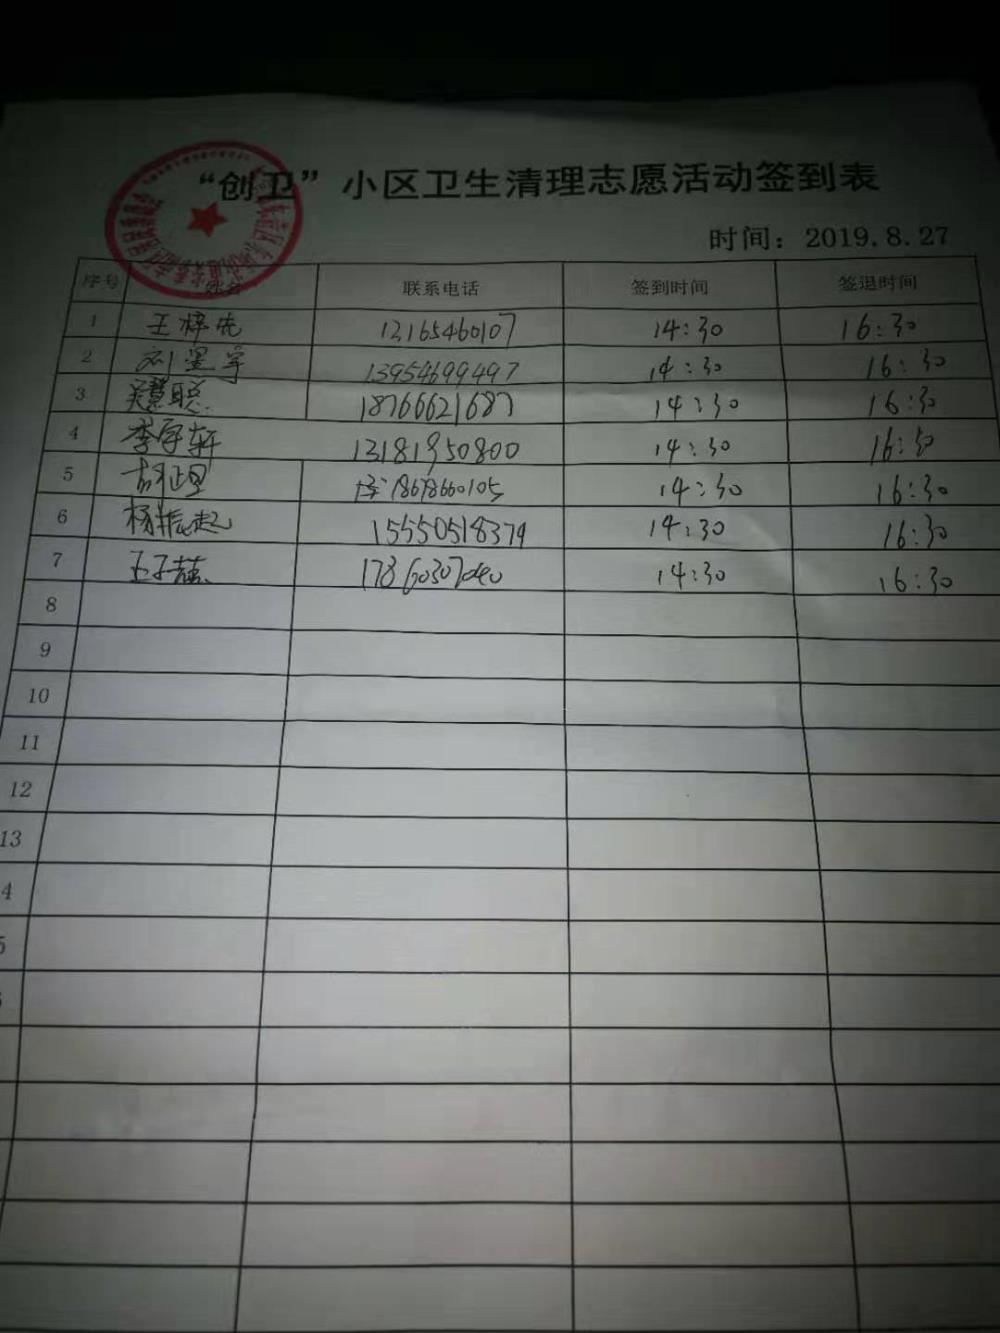 “创卫”小区卫生清理志愿活动签到表
时间：2019.8.27
序号 姓名 联系电话 签到时间 签退时间
1 王梓先 13165460107 14:30 16:30
2 刘星宇 13954699497 14:30 16:30
3 吴慧聪 18766621687 14:30 16:30
4 李宇轩 13181950800 14:30 16:30
5 18678660105 14:30 16:30
6 杨振起 15550518379 14:30 16:30
7 王子 17860307040 14:30 16:30
8
9
10
11
12
13
4
5